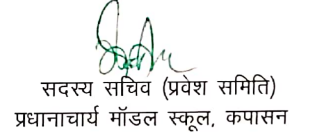 सदस्य सचिव (प्रवेश समिति)
प्रधानाचार्य मॉडल स्कूल, कपासन